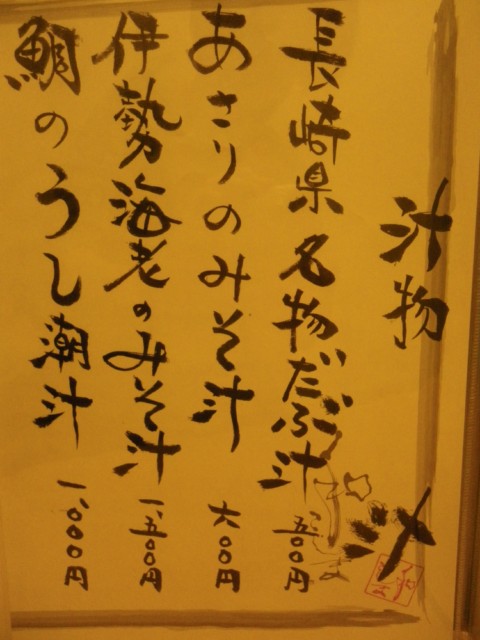 汁物
長崎県名物だぶ汁 五〇〇円
あさりのみそ汁 六〇〇円
伊勢海老のみそ汁 一、五〇〇円
鯛のうし潮汁 一、〇〇〇円
汁